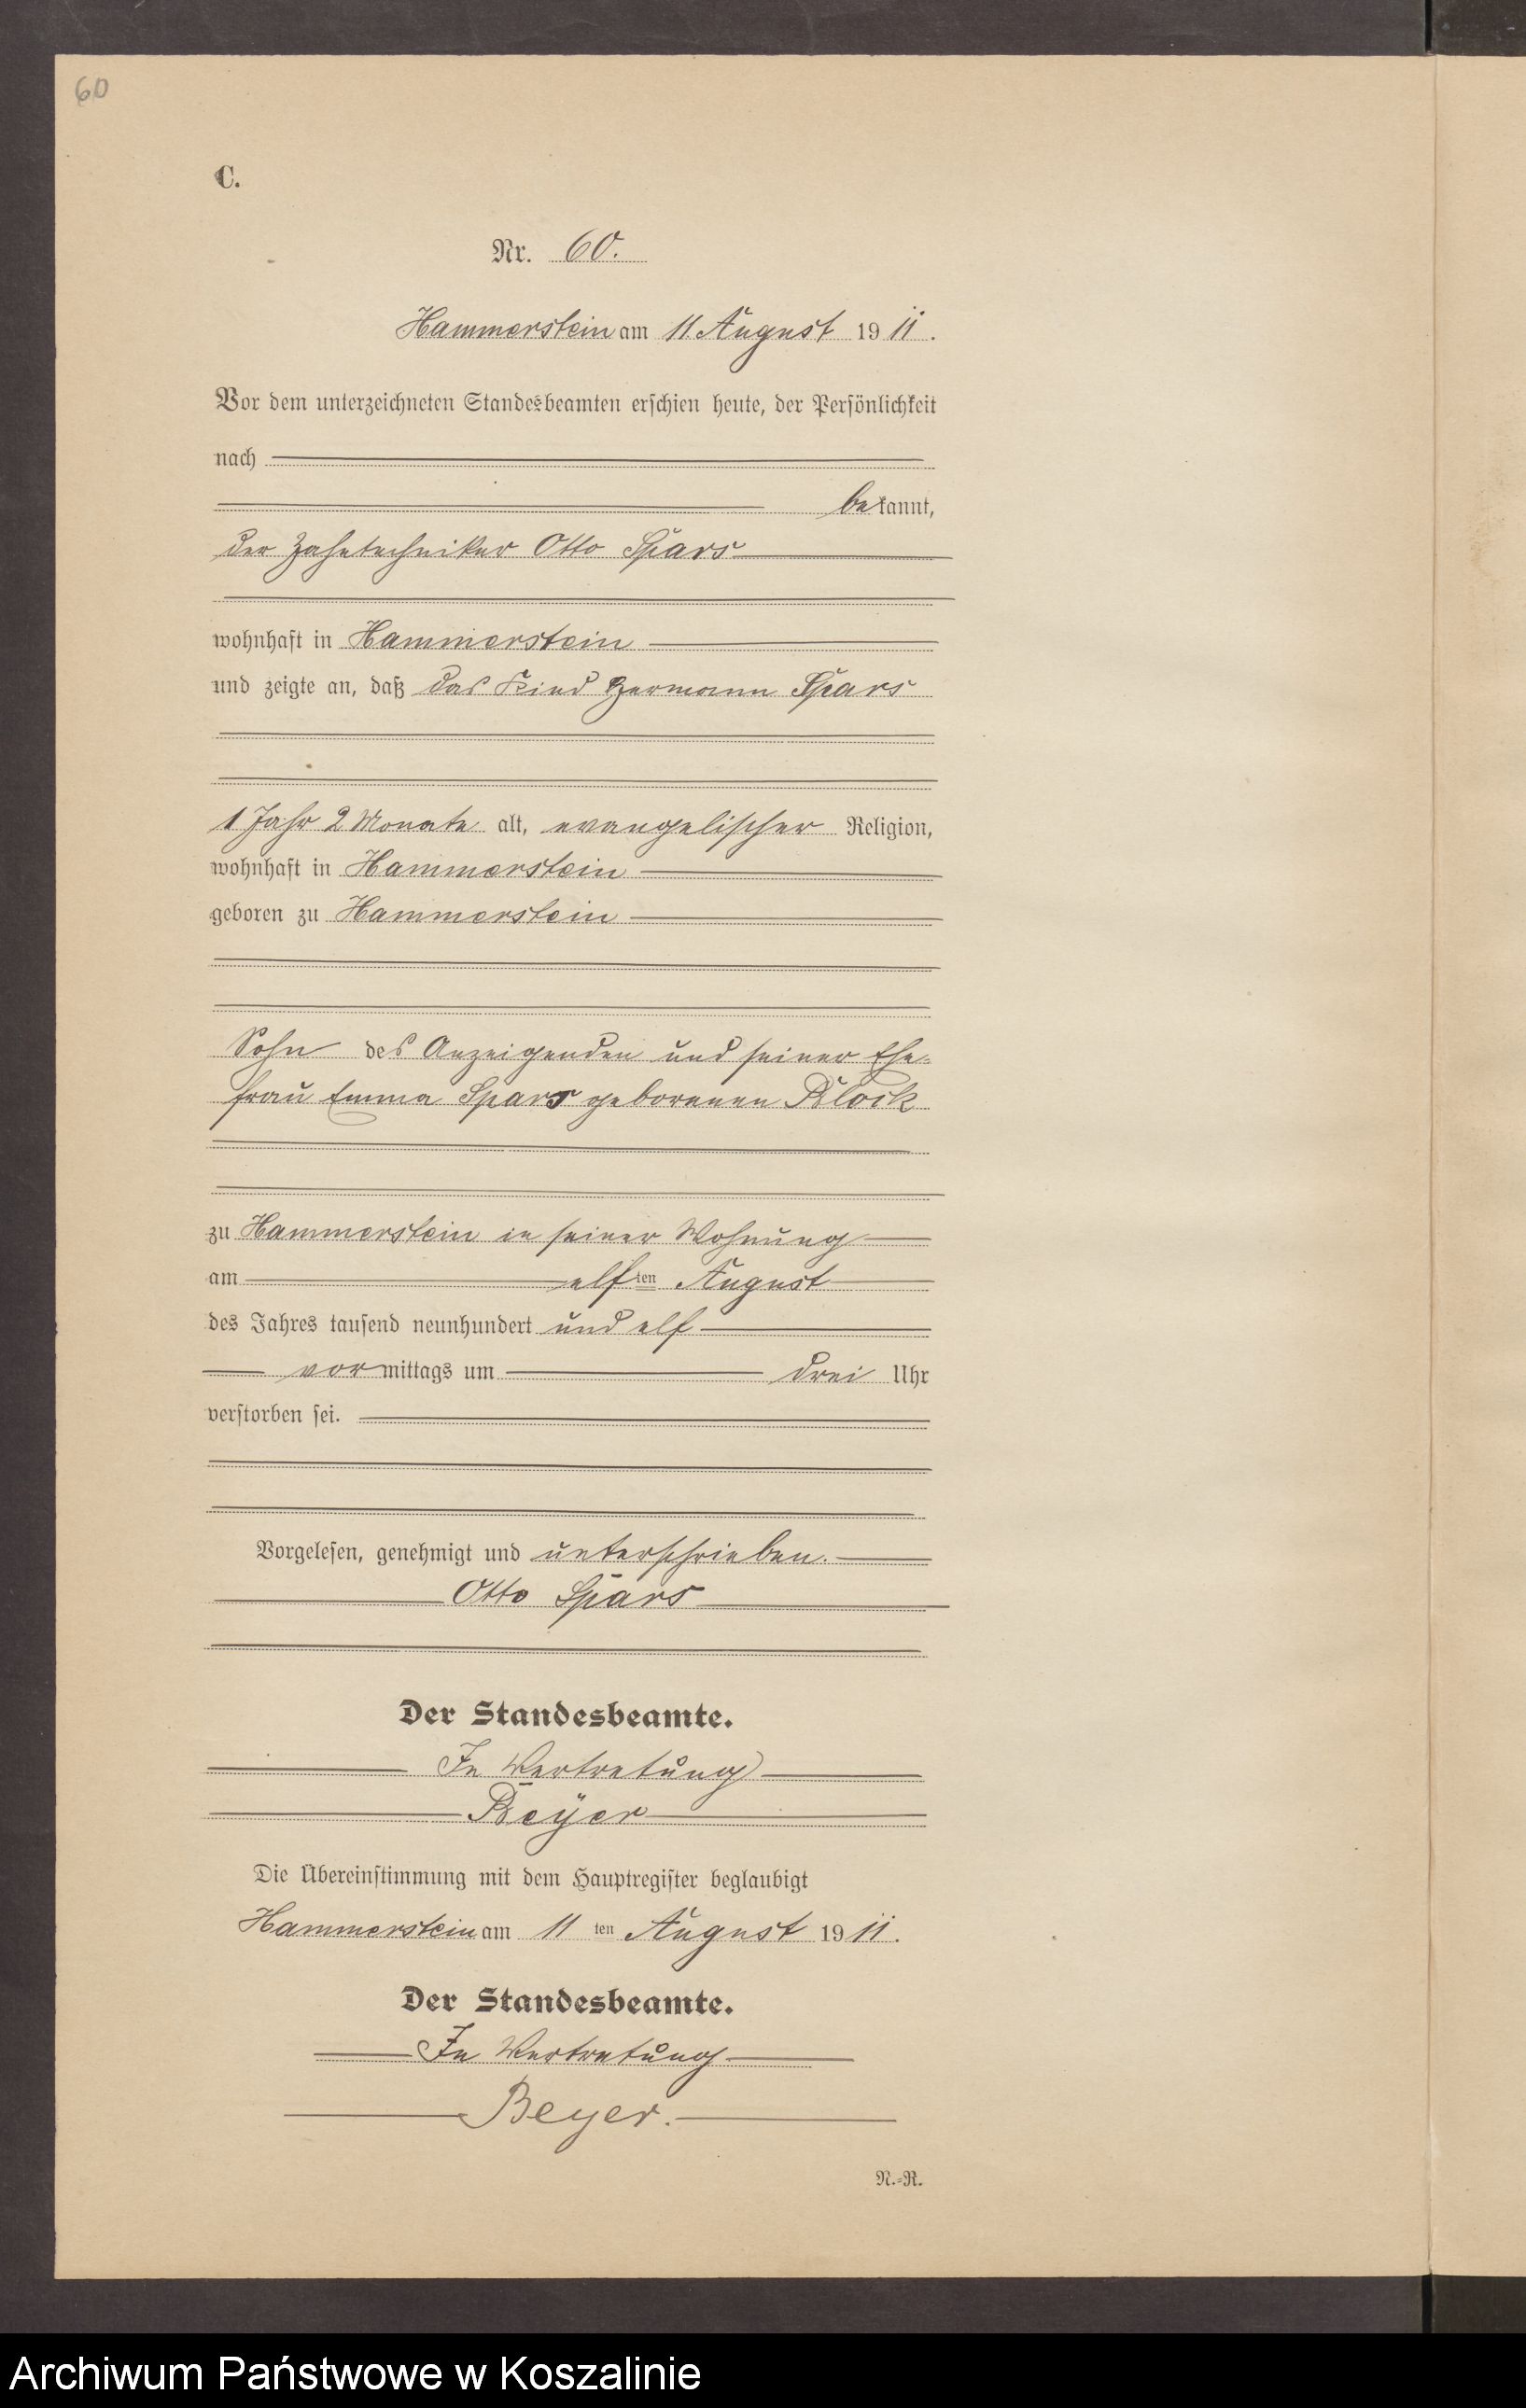 60
C.
Nr. 60.
Hammerstein am 11. August 1911.
Vor dem unterzeichneten Standesbeamten erschien heute, der Persönlichkeit
nach
bekannt,
der Zahntechniker Otto Spars
wohnhaft in Hammerstein
und zeigte an, daß das Kind Hermann Spars
1 Jahr 2 Monate alt, evangelischer Religion,
wohnhaft in Hammerstein
geboren zu Hammerstein
Sohn des Anzeigenden und seiner Ehe-
frau Emma Spars geborenen Block
zu Hammerstein in seiner Wohnung
am elften August
des Jahres tausend neunhundert und elf
vormittags um drei Uhr
verstorben sei.
Vorgelesen, genehmigt und unterschrieben.
Otto Spars
Der Standesbeamte.
In Vertretung
Beyer
Die Übereinstimmung mit dem Hauptregister beglaubigt
Hammerstein am 11ten August 1911.
Der Standesbeamte.
In Vertretung
Beyer.
N.-R.
Archiwum Państwowe w Koszalinie